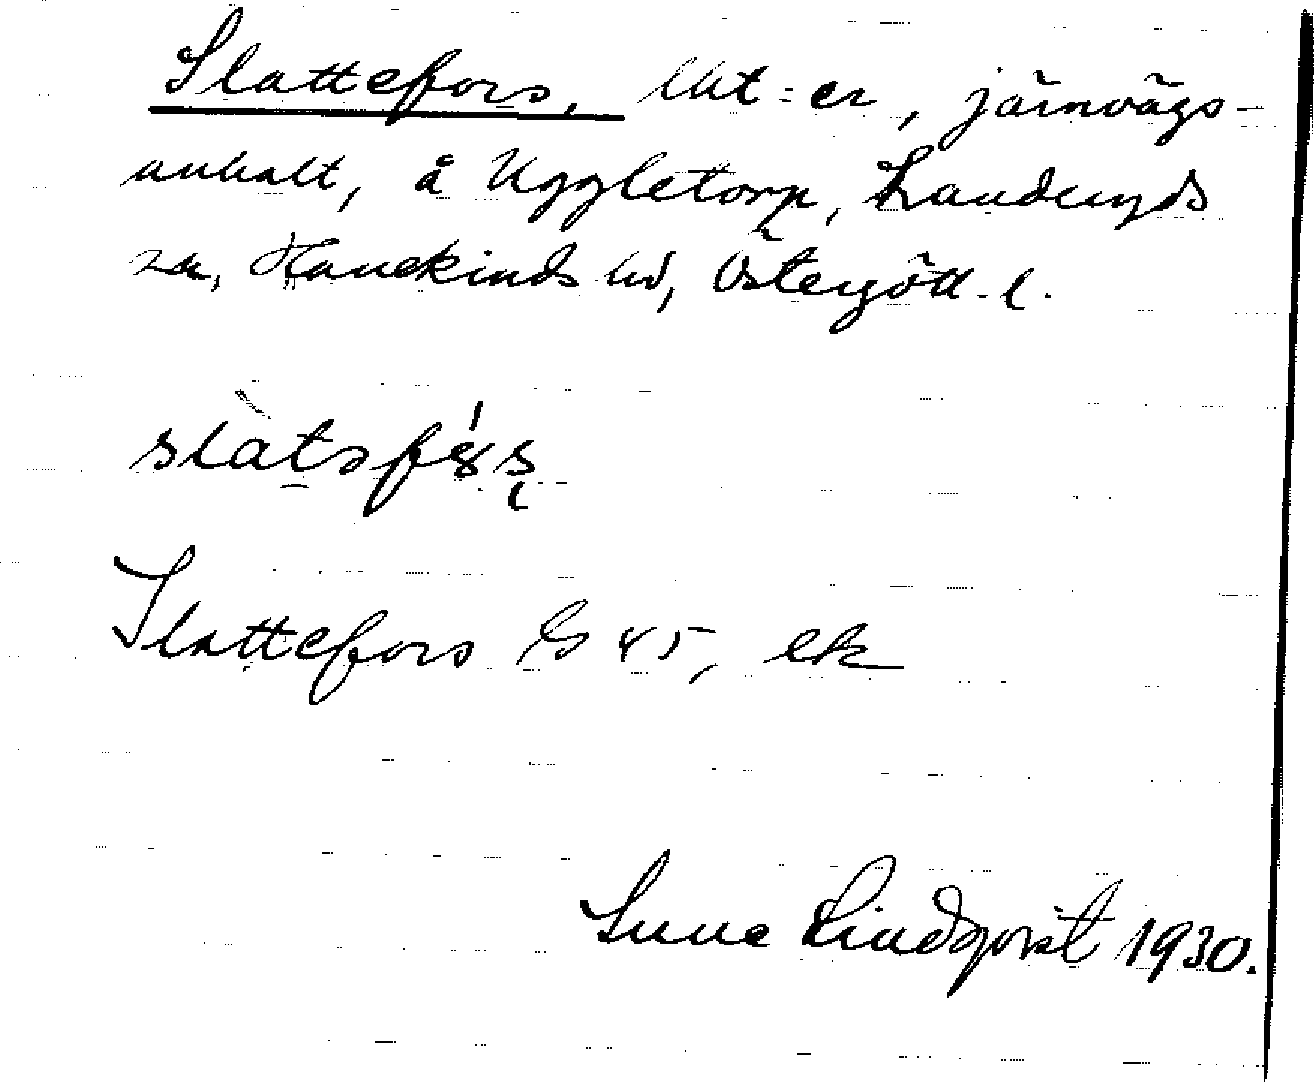 Slattefors, lht:er, järnvägs-
anhalt, å Uggletorp, Landeryds
sn, Hanekinds hd, Östergötl. l.
slàtsfórs
Slattefors G 45, ek
Sune Lindqvist 1930.